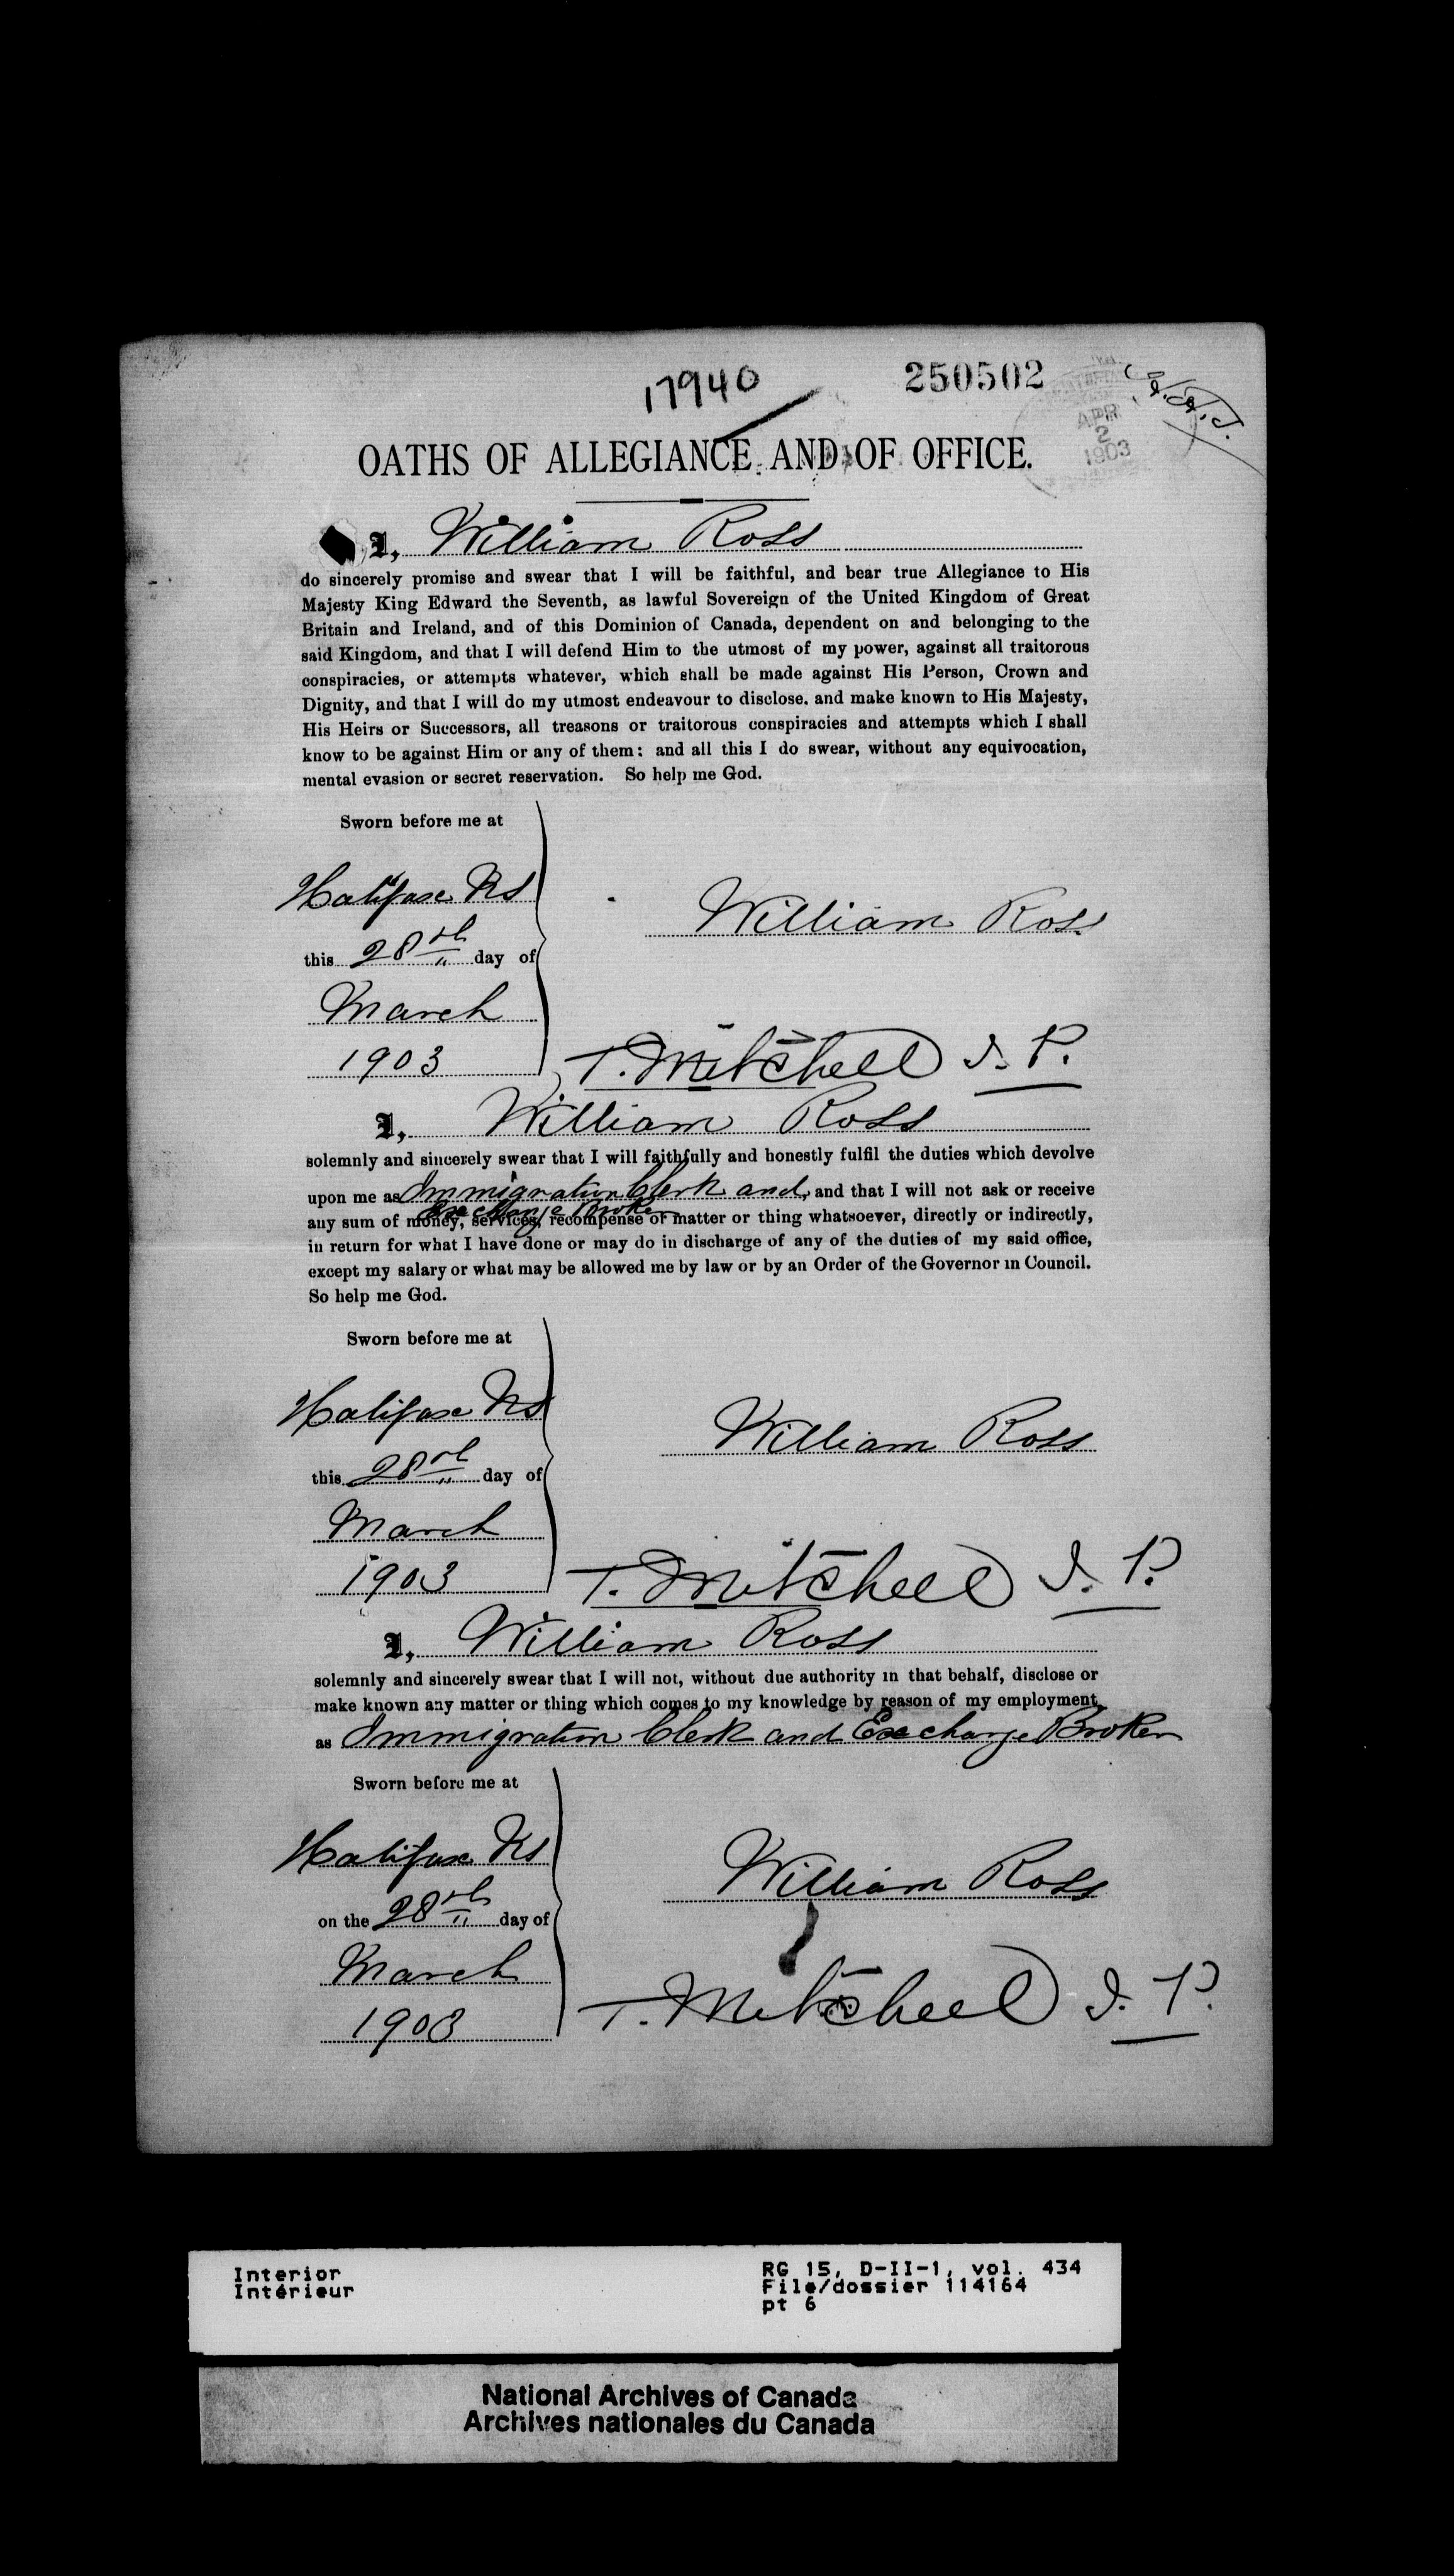 17940
250502
APR
2
1903
OATHS OF ALLEGIANCE AND OF OFFICE.
I, William Ross
do sincerely promise and swear that I will be faithful, and bear true Allegiance to His
Majesty King Edward the Seventh, as lawful Sovereign of the United Kingdom of Great
Britain and Ireland, and of this Dominion of Canada, dependent on and belonging to the
said Kingdom, and that I will defend Him to the utmost of my power, against all traitorous
conspiracies, or attempts whatever, which shall be made against His Person, Crown and
Dignity, and that I will do my utmost endeavour to disclose. and make known to His Majesty,
His Heirs or Successors, all treasons or traitorous conspiracies and attempts which I shall
know to be against Him or any of them: and all this I do swear, without any equivocation,
mental evasion or secret reservation. So help me God.
Sworn before me at
Halifax NS
William Ross
this 28th day of
March
1903
T. Mitchell J. P.
I, William Ross
solemnly and sincerely swear that I will faithfully and honestly fulfil the duties which devolve
upon me as Immigration Clerk and, and that I will not ask or receive
Exchange Broker
any sum of money, services, recompense or matter or thing whatsoever, directly or indirectly,
in return for what I have done or may do in discharge of any of the duties of my said office,
except my salary or what may be allowed me by law or by an Order of the Governor in Council.
So help me God.
Sworn before me at
Halifax NS
William Ross
this 28th day of
March
1903
T. Mitchell J. P.
I, William Ross
solemnly and sincerely swear that I will not, without due authority in that behalf, disclose or
make known any matter or thing which comes to my knowledge by reason of my employment
as Immigration Clerk and Exchange Broker
Sworn before me at
Halifax NS
William Ross
on the 28th day of
March
1903
T. Mitchell J. P.
Interior
Intérieur
RG 15, D-II-1, vol. 434
File/dossier 114164
pt 6
National Archives of Canada
Archives nationales du Canada